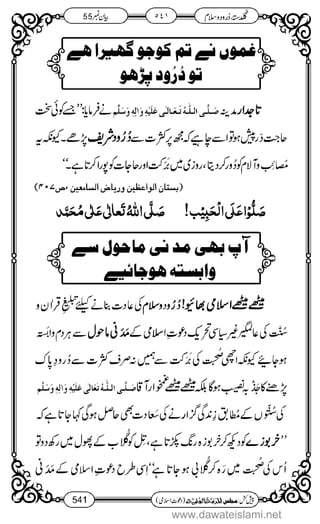 گلدستۂ درود و سلام ۵۴۱ بیان نمبر 55
غموں نے تم کو جو گھیرا ہے
تو دُرُود پڑھو
تاجدارِ مدینہ صَلَّی اللہُ تَعَالٰی عَلَیْہِ وَاٰلِہٖ وَسَلَّمَ نے فرمایا: ”جسے کوئی سخت
حاجت درپیش ہو تو اسے چاہیے کہ مجھ پر کثرت سے دُرُود شریف پڑھے۔ کیونکہ یہ
مصائب و آلام کو دور کر دیتا، روزی میں برکت اور حاجات کو پورا کرتا ہے۔“
(بستان الواعظین وریاض السامعین ،ص۴۰۷)
صَلُّوْا عَلَی الْحَبِیْبِ! صَلَّی اللہُ تَعَالٰی عَلٰی مُحَمَّد
آپ بھی مدنی ماحول سے
وابستہ ہوجائیے
میٹھے میٹھے اسلامی بھائیو! دُرُود و سلام کی عادت بنانے کیلئے تبلیغِ قرآن و
سُنَّت کی عالمگیر غیر سیاسی تحریک دعوتِ اسلامی کے مَدَنی ماحول سے ہر دم وابستہ
ہو جائیے کیونکہ اچھی صُحبت کی بَرَکت سے ہمیں نہ صرف کثرت سے دُرُودِ پاک
پڑھنے کا جذبہ نصیب ہوگا بلکہ میٹھے میٹھے آقا صَلَّی اللہُ تَعَالٰی عَلَیْہِ وَاٰلِہٖ وَسَلَّمَ
کی سُنَّتوں کے مطابق زِندگی گزارنے کی سَعادت بھی حاصل ہوگی کہا جاتا ہے کہ
”خربوزے کو دیکھ کر خربوزہ رنگ پکڑتا ہے، تِل کو گلاب کے پھول میں رکھ دو تو
اُس کی صُحبت میں رَہ کر گلابی ہو جاتا ہے“ اسی طرح دعوتِ اسلامی کے مَدَنی
541
www.dawateislami.net